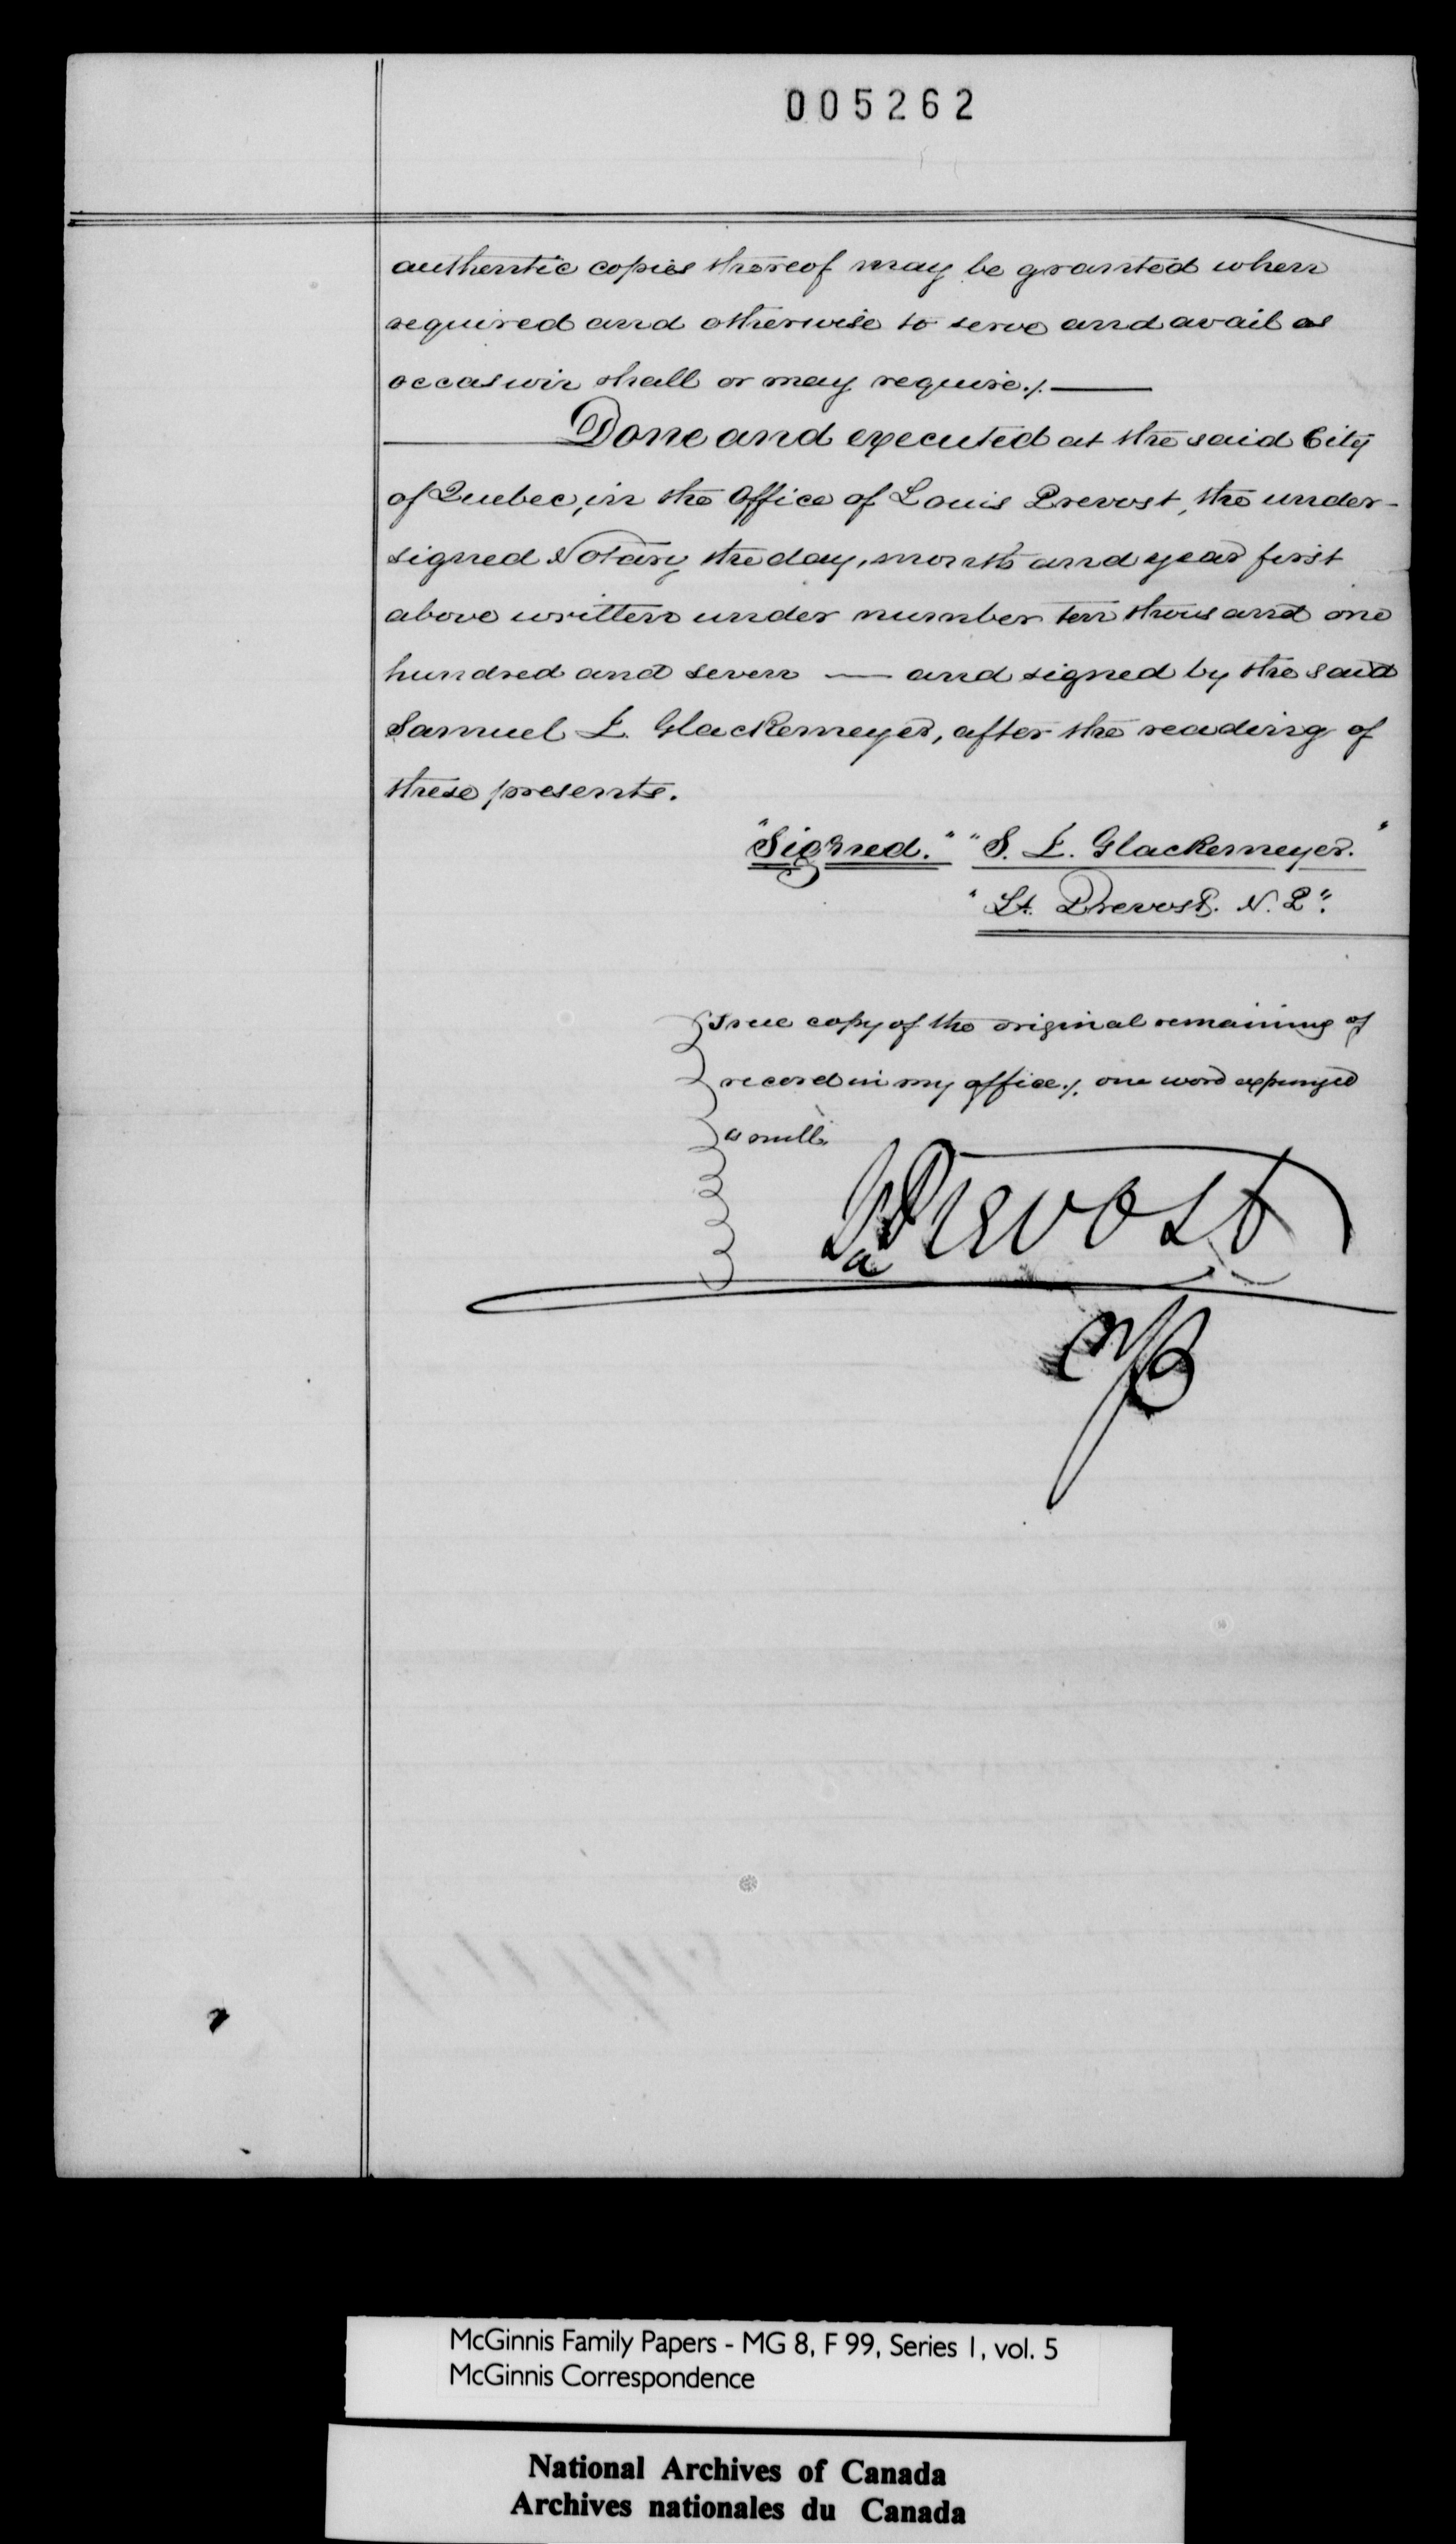 005262
authentic copies thereof may be granted when
required and otherwise to serve and avail as
occasion shall or may require./.
Done and executed at the said City
of Quebec, in the Office of Louis Prevost, the under-
signed Notary, the day, month and year first
above written under number ten thousand one
hundred and seven — and signed by the said
Samuel I. Glackemeyer, after the reading of
these presents.
"Signed." "S. I. Glackemeyer."
"Ls. Prevost. N. P".
True copy of the original remaining of
record in my office./. one word expunged
is null.
Ls Prevost
NP
McGinnis Family Papers - MG 8, F 99, Series 1, vol. 5
McGinnis Correspondence
National Archives of Canada
Archives nationales du Canada